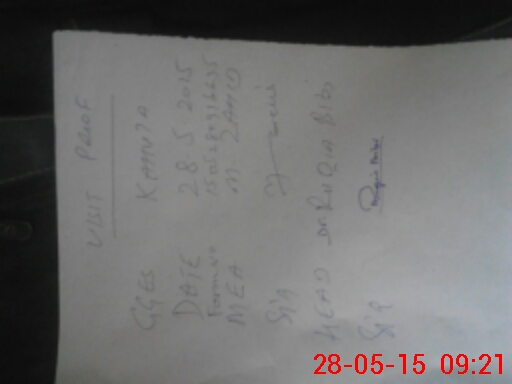 VISIT PROOF
GGES KAHUTA
DATE 28.5.2015
Form No
MEA M.
Sig
HEAD Dr RUQIA Bibi
Sig
28-05-15 09:21